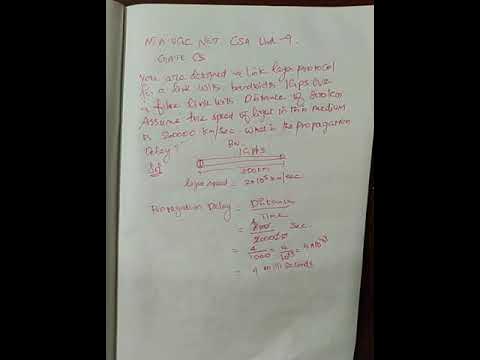 NTA UGC NET CSA Unit - 9
GATE CS
You are designed a link layer protocol
for a link with bandwidth 1Gbps over
a fiber link with Distance of 800km
Assume the speed of light in this medium
is 200000 km/sec. what is the propagation
Delay?
Sol
BW
1Gbps
800km
light speed = 2x10⁵ km/sec
Propagation Delay = Distance
Time
= 800 Sec
200000
= 4 = 4 = 4x10⁻³
1000 10³
= 4 milliseconds